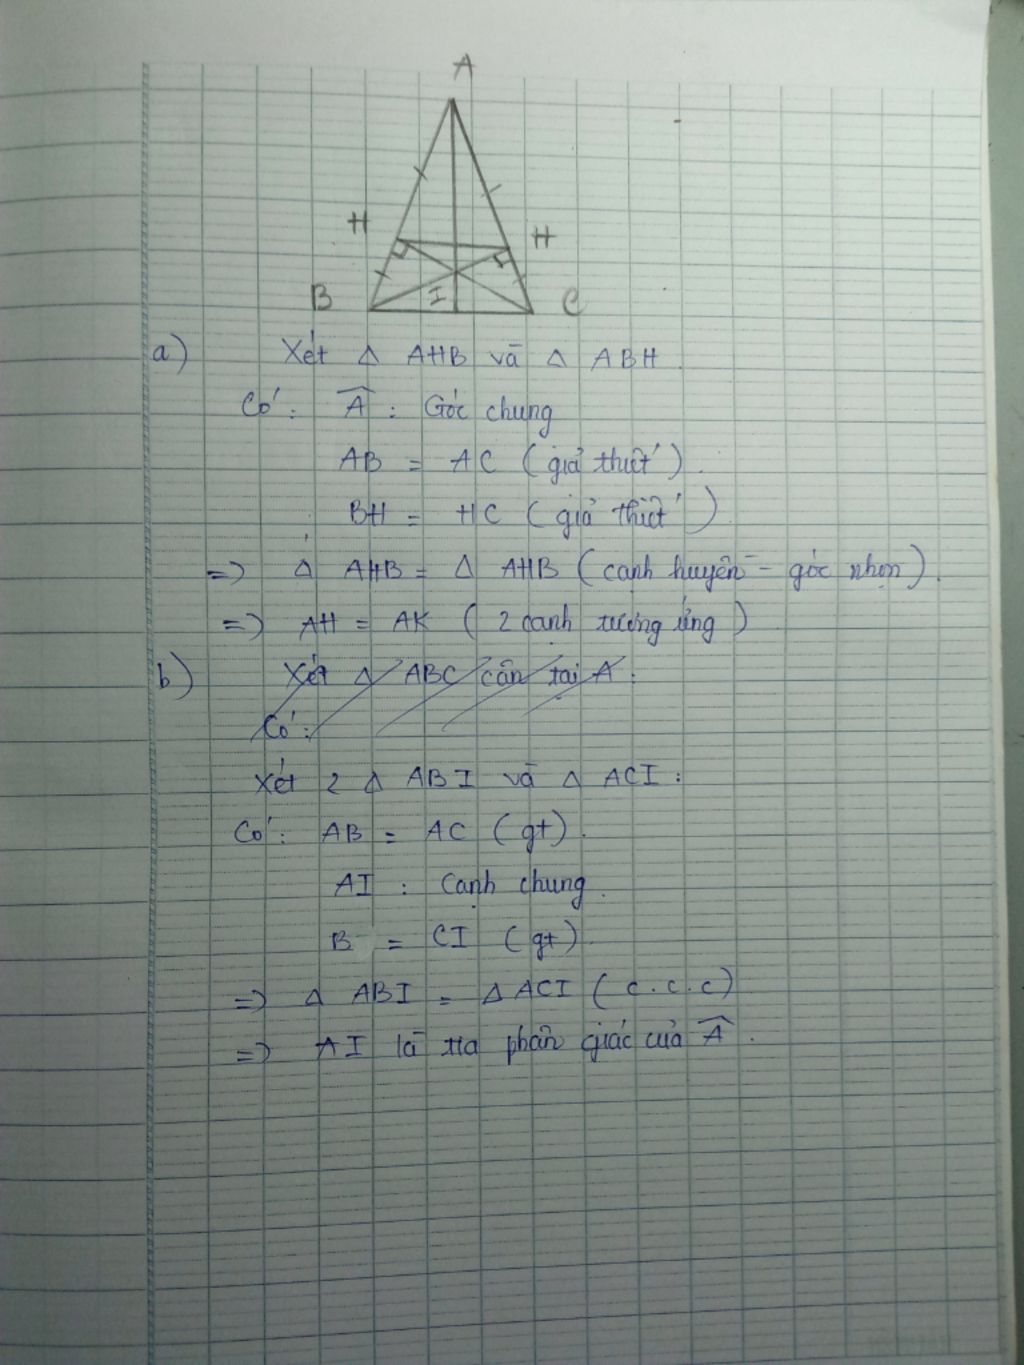 A
H H
B I C
a) Xét Δ AHB và Δ ABH.
Có: A : Góc chung
AB = AC (giả thiết).
BH = HC (giả thiết)
=> Δ AHB = Δ AHB (cạnh huyền - góc nhọn).
=> AH = AK (2 cạnh tương ứng)
b) Xét Δ ABC cân tại A :
Có:
Xét 2 Δ ABI và Δ ACI :
Có: AB = AC (gt).
AI : Cạnh chung.
B = CI (gt).
=> Δ ABI = Δ ACI (c.c.c)
=> AI là tia phân giác của A.